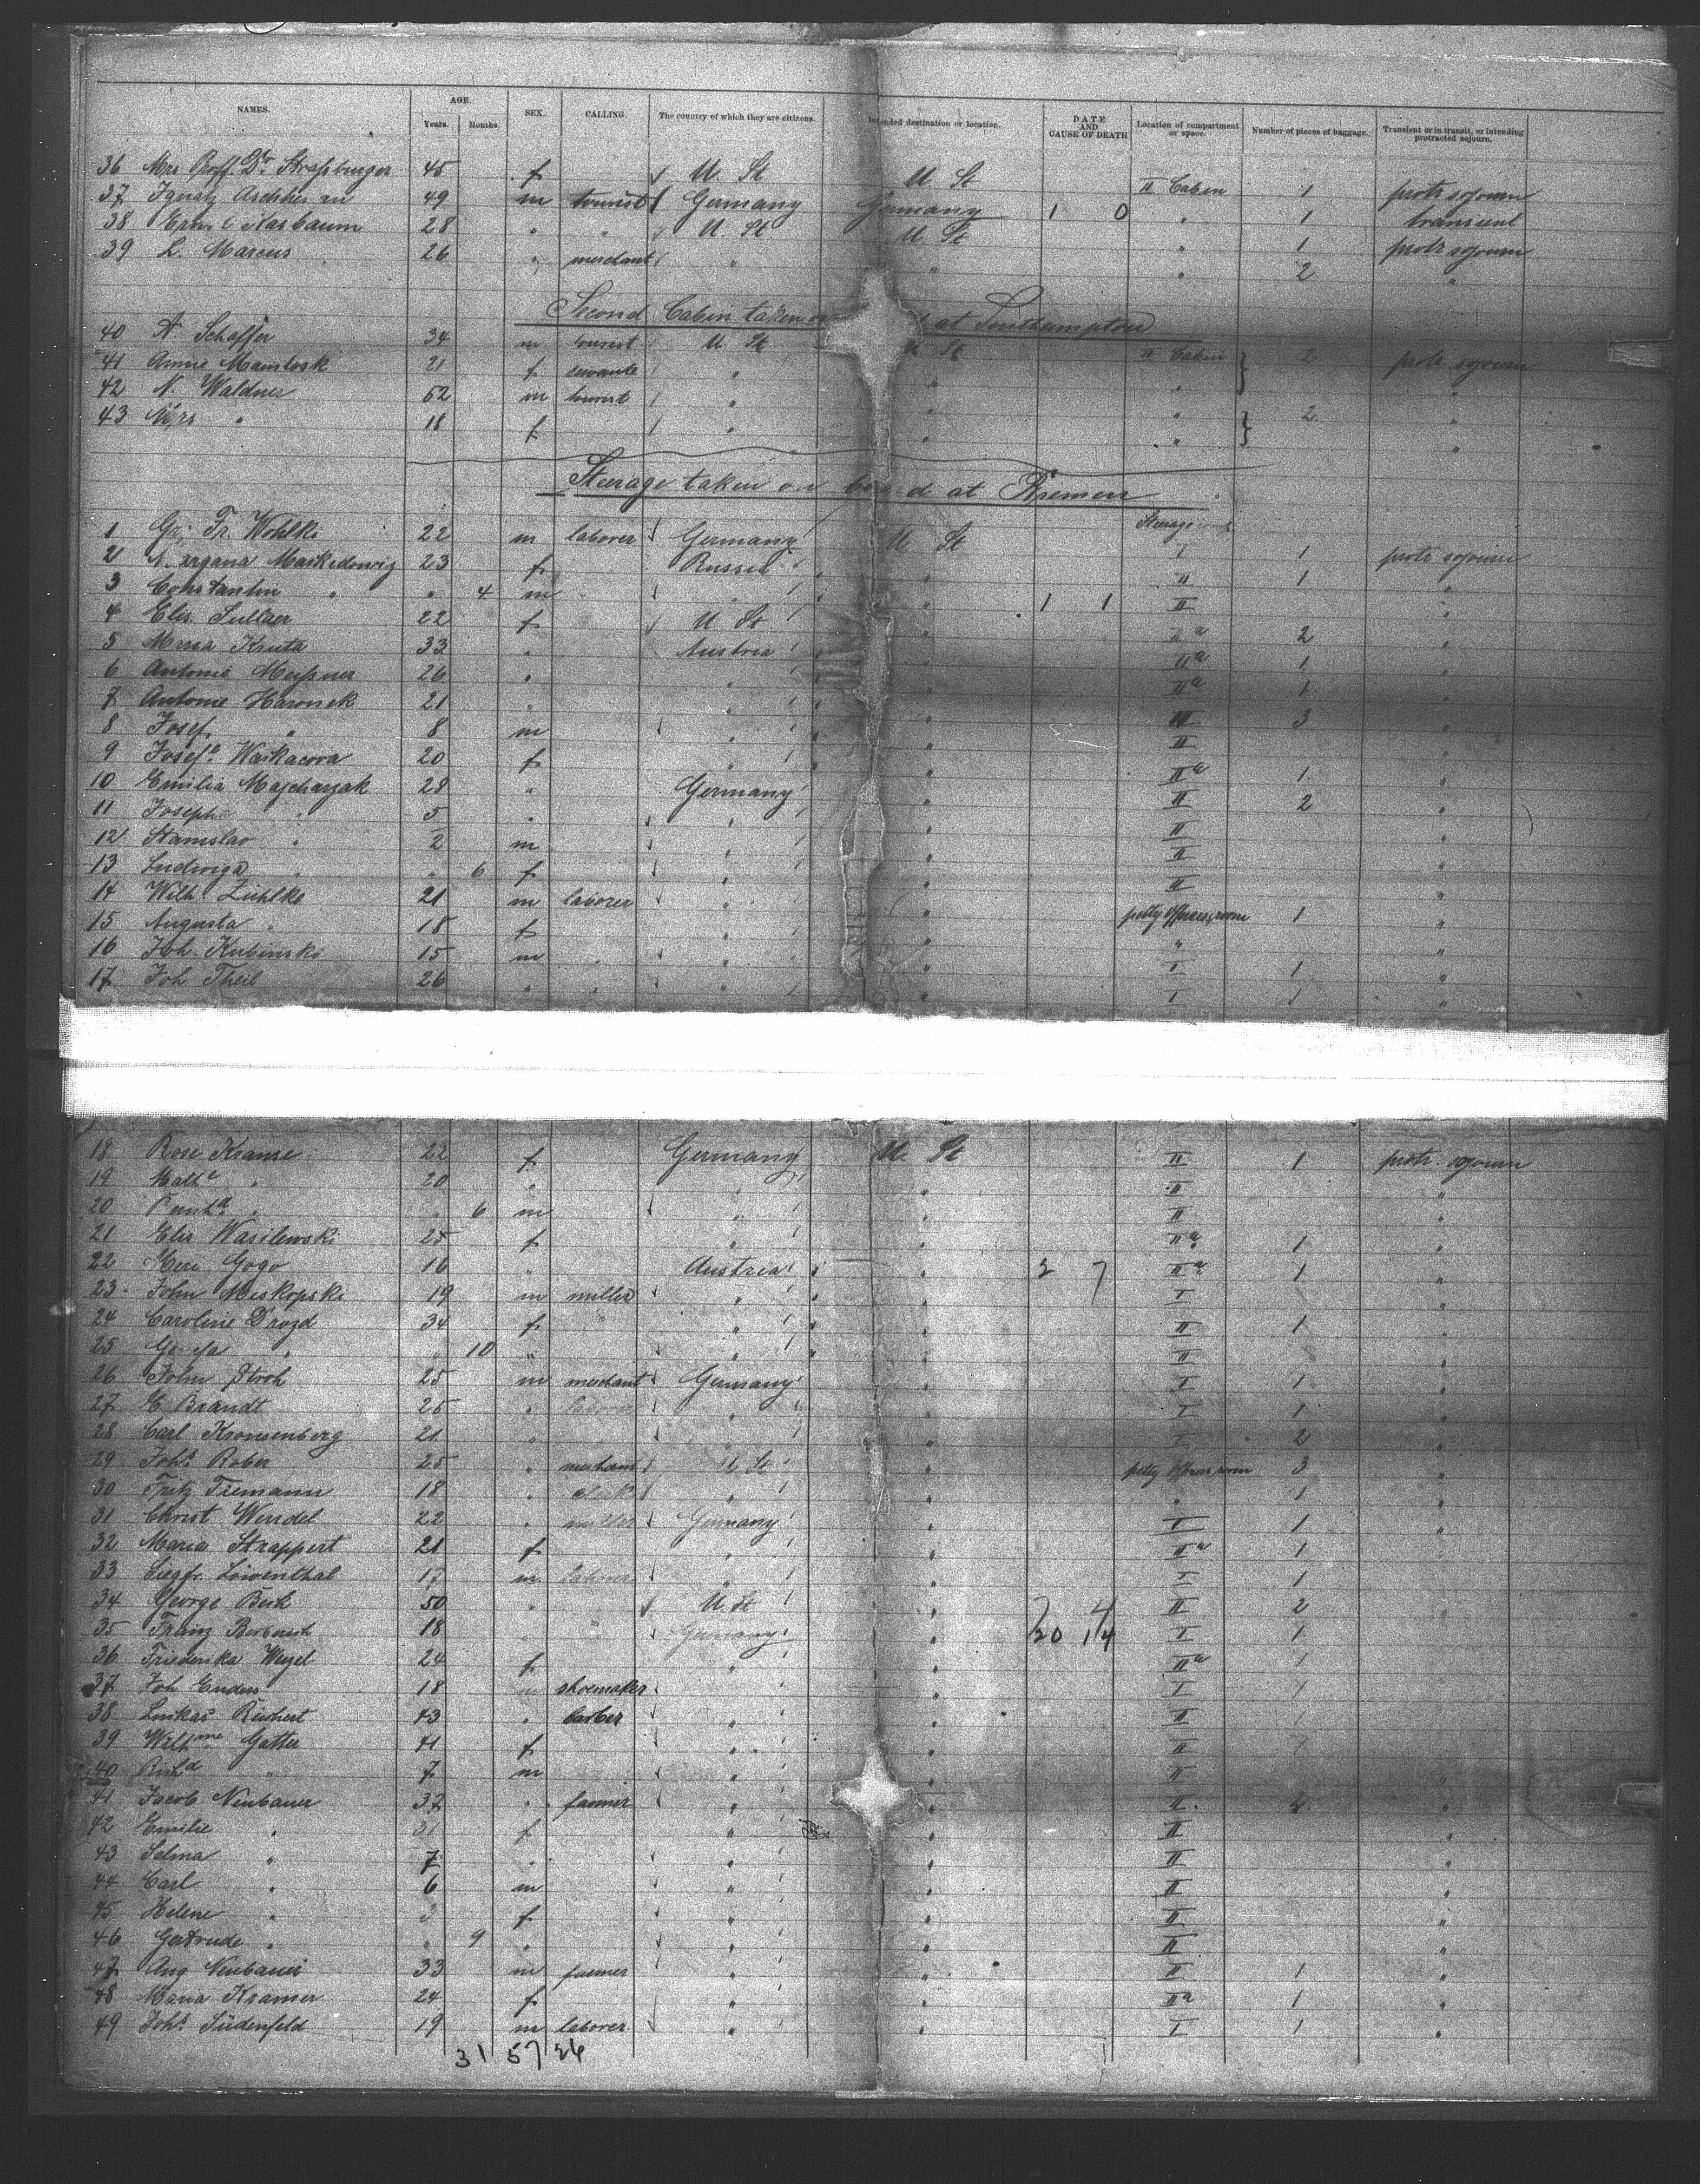 NAMES. AGE. Years. Months. SEX. CALLING. The country of which they are citizens. Intended destination or location. DATE AND CAUSE OF DEATH Location of compartment or space. Number of pieces of baggage. Transient or in transit, or intending protracted sojourn.
36 Mrs Proff. Dr. Straßburger 45 f U. St U. St II Cabin 1 protr sojourn
37 Ignatz 49 m tourist Germany Germany 1 0 " 1 transient
38 Nasbaum 28 " " U. St U. St " 1 protr sojourn
39 L. Marcus 26 " merchant " " " 2 "
Second Cabin taken at Southampton
40 A. Schaffer 34 m tourist U. St St II Cabin 2 protr sojourn
41 Annie 21 f servante " " " "
42 N. Waldner 52 m tourist " " " 2 "
43 Mrs " 18 f " " " "
Steerage taken on board at Bremen
1 Fr. Wohlki 22 m laborer Germany U. St Steerage I 1 protr sojourn
2 23 f Russia " II 1 "
3 Constantin " " 4 m " " 1 1 II "
4 Elis. 22 f U. St " 2 "
5 Kruta 33 " Austria " II a 1 "
6 Antonie Meißner 26 " " " II a 1 "
7 Antonie Hawrnek 21 " " " III 3 "
8 Josef " 8 m " " II "
9 Josefa Waikacova 20 f " " II a 1 "
10 Emilia Majcharzak 28 " Germany " II 2 "
11 Josepha " 5 " " " II "
12 Stanislav " 2 m " " II "
13 Ludwiga " " 6 f " " II "
14 Wilh. Zühlke 21 m laborer " " petty officers room 1 "
15 Augusta " 18 f " " " "
16 Joh. Kubinski 15 m " " " I 1 "
17 Joh Theil 26 " " " " I 1 "
18 Rose Krause 22 f Germany U. St II 1 protr. sojourn
19 " 20 " " " II "
20 " " 6 m " " II "
21 Elis Wasilewski 25 f " " II a 1 "
22 Gogo 16 " Austria " 2 7 II a 1 "
23 John Miskopski 19 m miller " " I "
24 Caroline Drozd 34 f " " II 1 "
25 " " 10 " " " II "
26 John Stroh 25 m merchant Germany " I 1 "
27 Brandt 25 " laborer " " I 1 "
28 Carl Kronsenberg 21 " " " I 2 "
29 Joh. Rober 25 " merchant U. St " petty officers room 3 "
30 Fritz Tiemann 18 " clerk " " " 1 "
31 Christ Wendel 22 " miller Germany " I 1 "
32 Maria Strappert 21 f " " II a 1 "
33 Siegfr. Löwenthal 17 m laborer " " I 1 "
34 George Berk 50 " " U. St " 4 II 2 "
35 Franz 18 " " Germany " 20 14 I 1 "
36 Friederika Weyel 24 f " " II a 1
37 Joh Enders 18 m shoemaker " " I 1
38 Lukas Reichert 43 " barber " " II
39 Wilhme Gatter 41 f " " II
40 Richd " 7 m " " II
41 Jacob Neubauer 37 " farmer " " II 4 "
42 Emilie " 31 f " " II "
43 Selma " 7 " " " II "
44 Carl " 6 m " " II "
45 Helene " 3 f " " II "
46 Gertrude " " 9 " " " II "
47 Aug Neubauer 33 m farmer " " II 1 "
48 Maria Kramer 24 f " " II a 1 "
49 Joh. Südenfeld 19 m laborer " " I 1 "
31 57 26